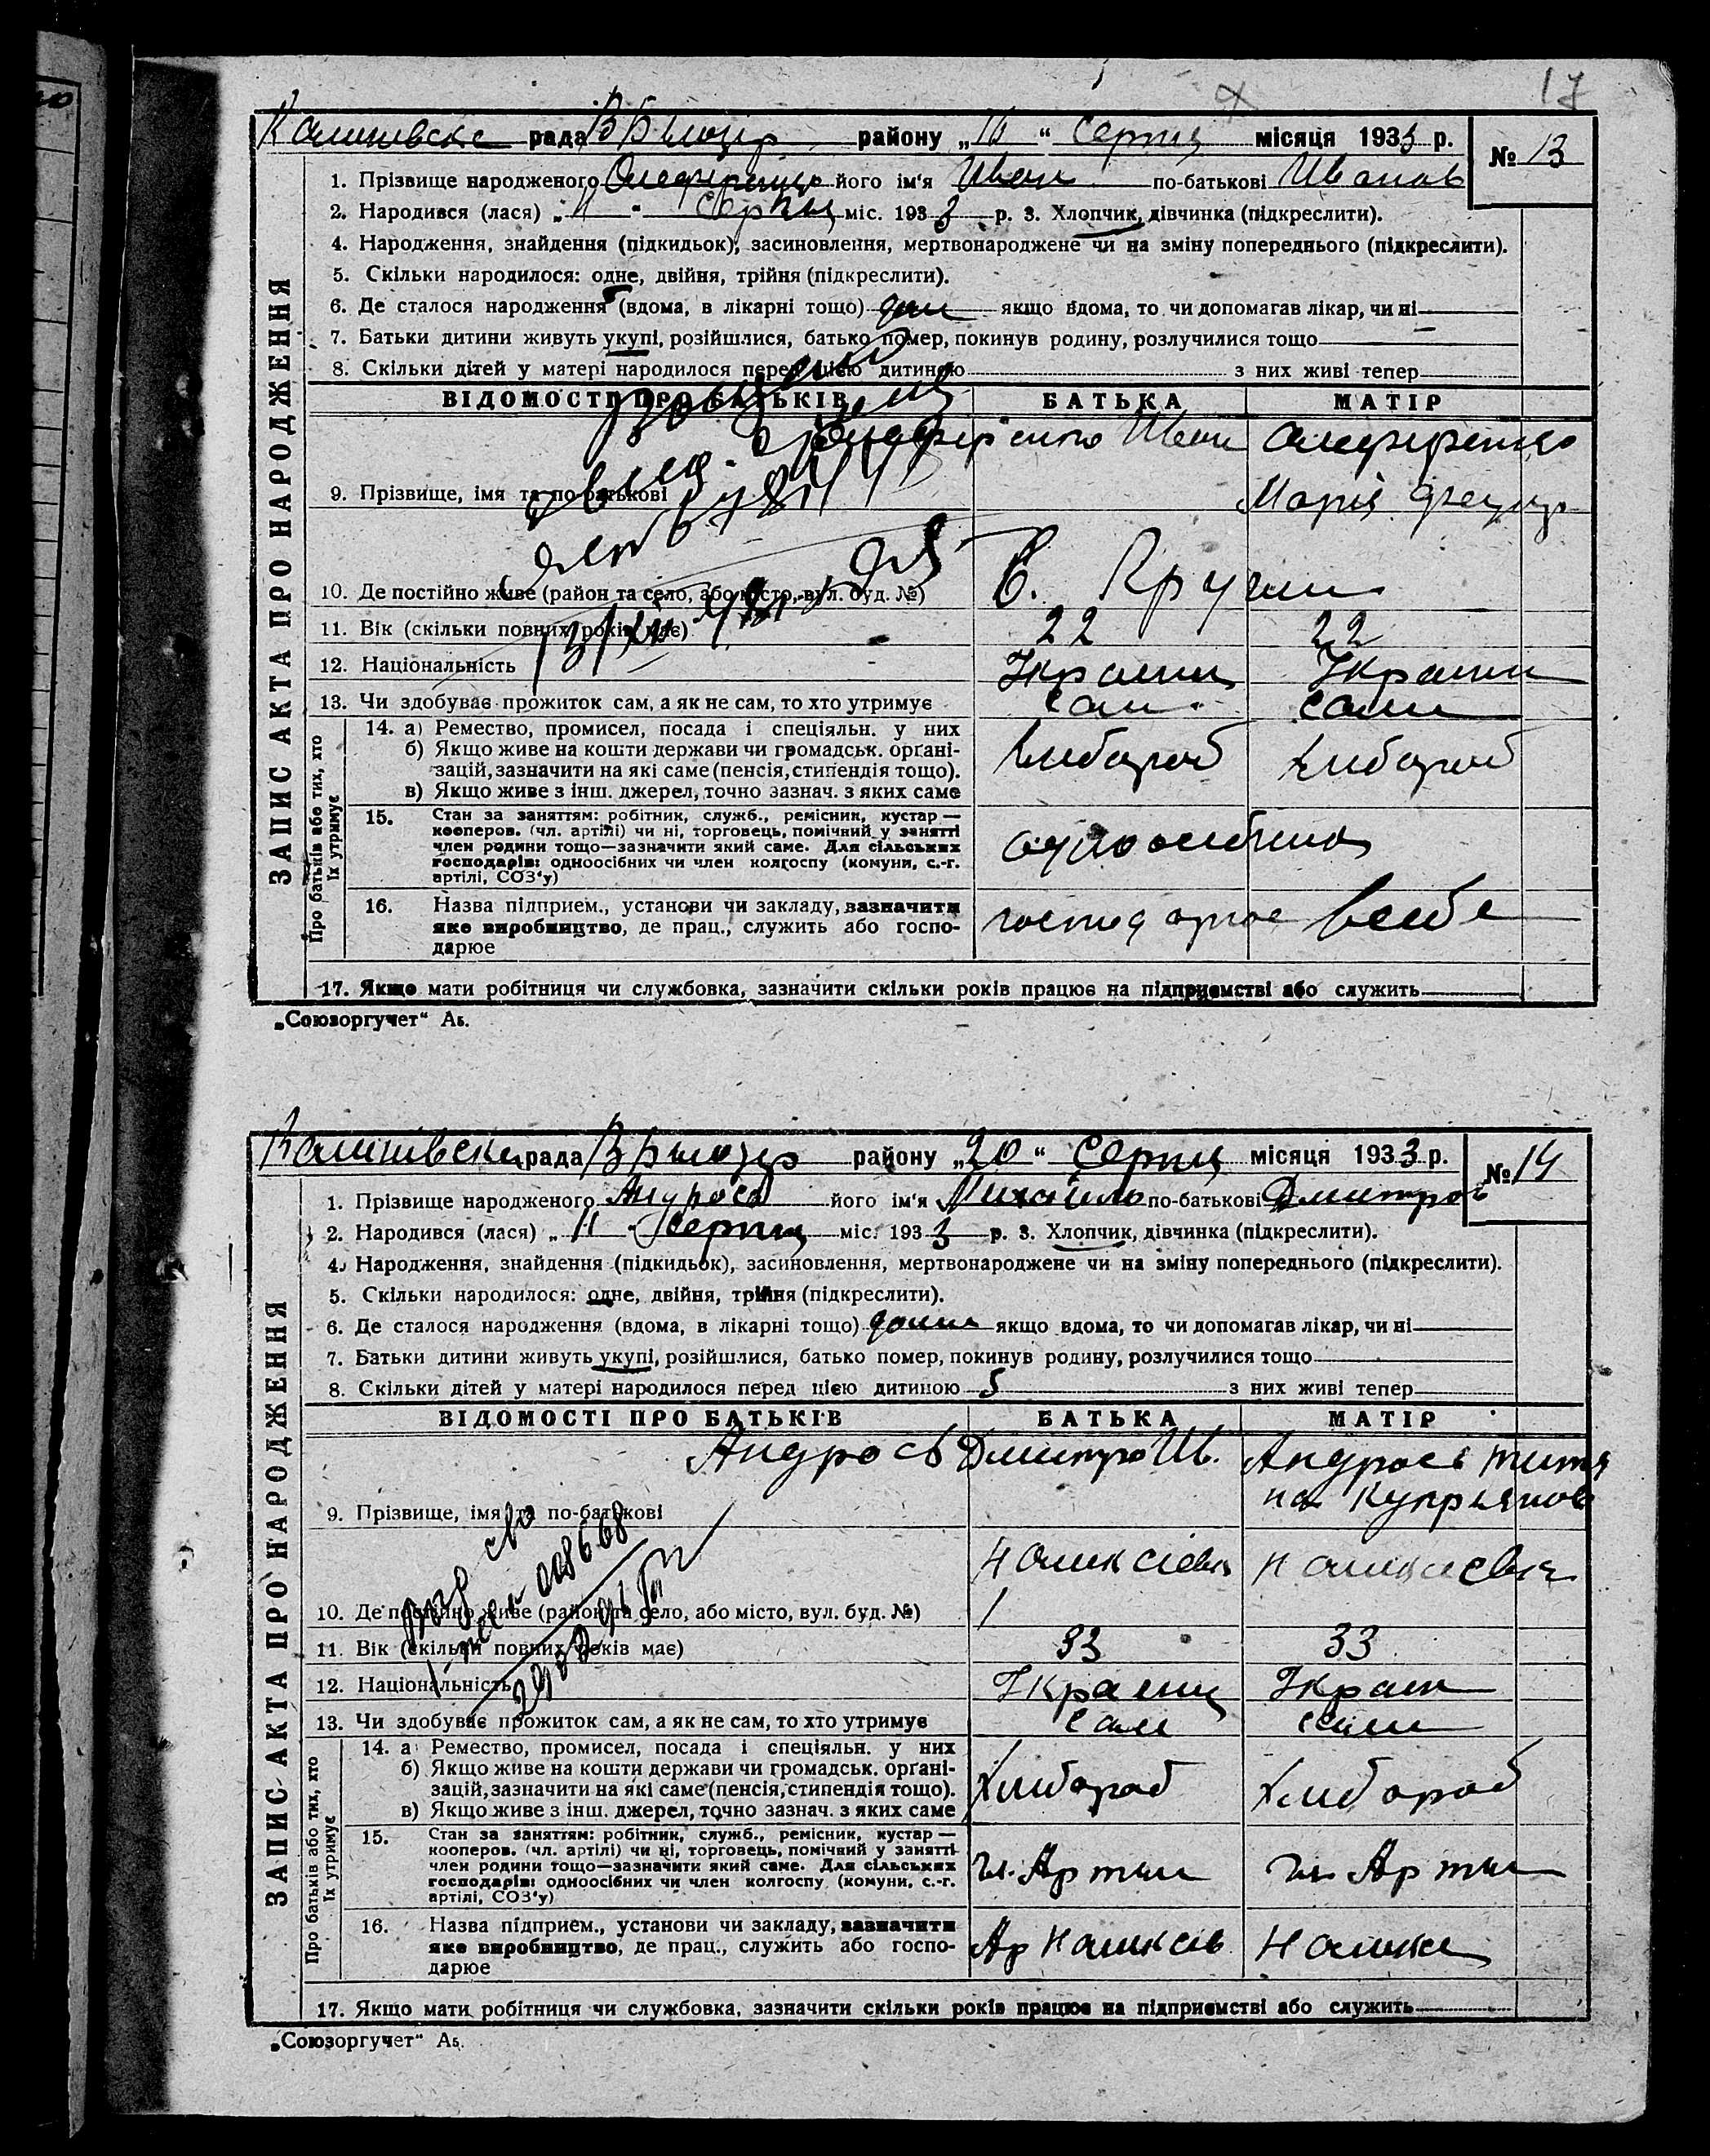 17
рада району „16“ Серпня місяця 1933 р.
№ 13
ЗАПИС АКТА ПРО НАРОДЖЕННЯ
1. Прізвище народженого його ім'я Иван по-батькові Иванов
2. Народився (лася) „11“ Серпня міс. 1933 р. 3. Хлопчик, дівчинка (підкреслити).
4. Народження, знайдення (підкидьок), засиновлення, мертвонароджене чи на зміну попереднього (підкреслити).
5. Скільки народилося: одне, двійня, трійня (підкреслити).
6. Де сталося народження (вдома, в лікарні тощо) якщо вдома, то чи допомагав лікар, чи ні
7. Батьки дитини живуть укупі, розійшлися, батько помер, покинув родину, розлучилися тощо
8. Скільки дітей у матері народилося перед цією дитиною з них живі тепер
ВІДОМОСТІ ПРО БАТЬКІВ БАТЬКА МАТІР
Иван
9. Прізвище, імя та по-батькові Марія
10. Де постійно живе (район та село, або місто, вул. буд. №)
11. Вік (скільки повних років має) 22 22
12. Національність Украинц Украин
13. Чи здобуває прожиток сам, а як не сам, то хто утримує сам сами
Про батьків або тих, хто їх утримує
14. а) Ремество, промисел, посада і спеціяльн. у них
б) Якщо живе на кошти держави чи громадськ. орґані-
зацій, зазначити на які саме (пенсія, стипендія тощо). Хлибороб Хлибороб
в) Якщо живе з інш. джерел, точно зазнач. з яких саме
15. Стан за заняттям: робітник, служб., ремісник, кустар —
кооперов. (чл. артілі) чи ні, торговець, помічний у занятті
член родини тощо—зазначити який саме. Для сільських
господарів: одноосібних чи член колгоспу (комуни, с.-г.
артілі, СОЗ'у)
16. Назва підприєм., установи чи закладу, зазначити
яке виробництво, де прац., служить або госпо-
дарює
17. Якщо мати робітниця чи службовка, зазначити скільки років працює на підприємстві або служить
„Союзоргучет“ А5.
рада району „20“ Серпня місяця 1933 р.
№ 14
ЗАПИС АКТА ПРО НАРОДЖЕННЯ
1. Прізвище народженого Андрось його ім'я Михайло по-батькові Дмитров
2. Народився (лася) „11“ Серпня міс. 1933 р. 3. Хлопчик, дівчинка (підкреслити).
4. Народження, знайдення (підкидьок), засиновлення, мертвонароджене чи на зміну попереднього (підкреслити).
5. Скільки народилося: одне, двійня, трійня (підкреслити).
6. Де сталося народження (вдома, в лікарні тощо) дома якщо вдома, то чи допомагав лікар, чи ні
7. Батьки дитини живуть укупі, розійшлися, батько помер, покинув родину, розлучилися тощо
8. Скільки дітей у матері народилося перед цією дитиною 5 з них живі тепер
ВІДОМОСТІ ПРО БАТЬКІВ БАТЬКА МАТІР
Андрось Дмитро Ив. Андрось
9. Прізвище, імя та по-батькові
10. Де постійно живе (район та село, або місто, вул. буд. №)
11. Вік (скільки повних років має) 33 33
12. Національність Украинц Украин
13. Чи здобуває прожиток сам, а як не сам, то хто утримує сам сами
Про батьків або тих, хто їх утримує
14. а) Ремество, промисел, посада і спеціяльн. у них
б) Якщо живе на кошти держави чи громадськ. орґані-
зацій, зазначити на які саме (пенсія, стипендія тощо). Хлибороб Хлибороб
в) Якщо живе з інш. джерел, точно зазнач. з яких саме
15. Стан за заняттям: робітник, служб., ремісник, кустар —
кооперов. (чл. артілі) чи ні, торговець, помічний у занятті
член родини тощо—зазначити який саме. Для сільських
господарів: одноосібних чи член колгоспу (комуни, с.-г.
артілі, СОЗ'у)
16. Назва підприєм., установи чи закладу, зазначити
яке виробництво, де прац., служить або госпо-
дарює
17. Якщо мати робітниця чи службовка, зазначити скільки років працює на підприємстві або служить
„Союзоргучет“ А5.